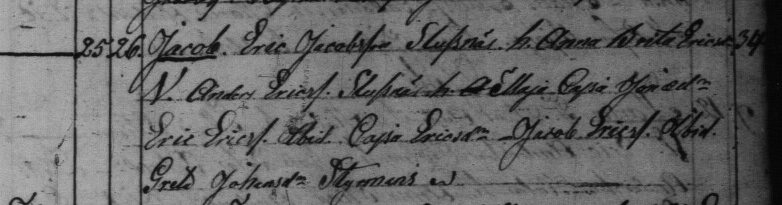 25 26. Jacob. Eric Jacobsson Slusnäs h. Anna Brita Ericsdr 34
V. Anders Ericss. Slusnäs h. Maja Cajsa
Eric Ericss. Ibid. Cajsa Ericsdr Jacob Ericss. Ibid.
Greta Johansdr